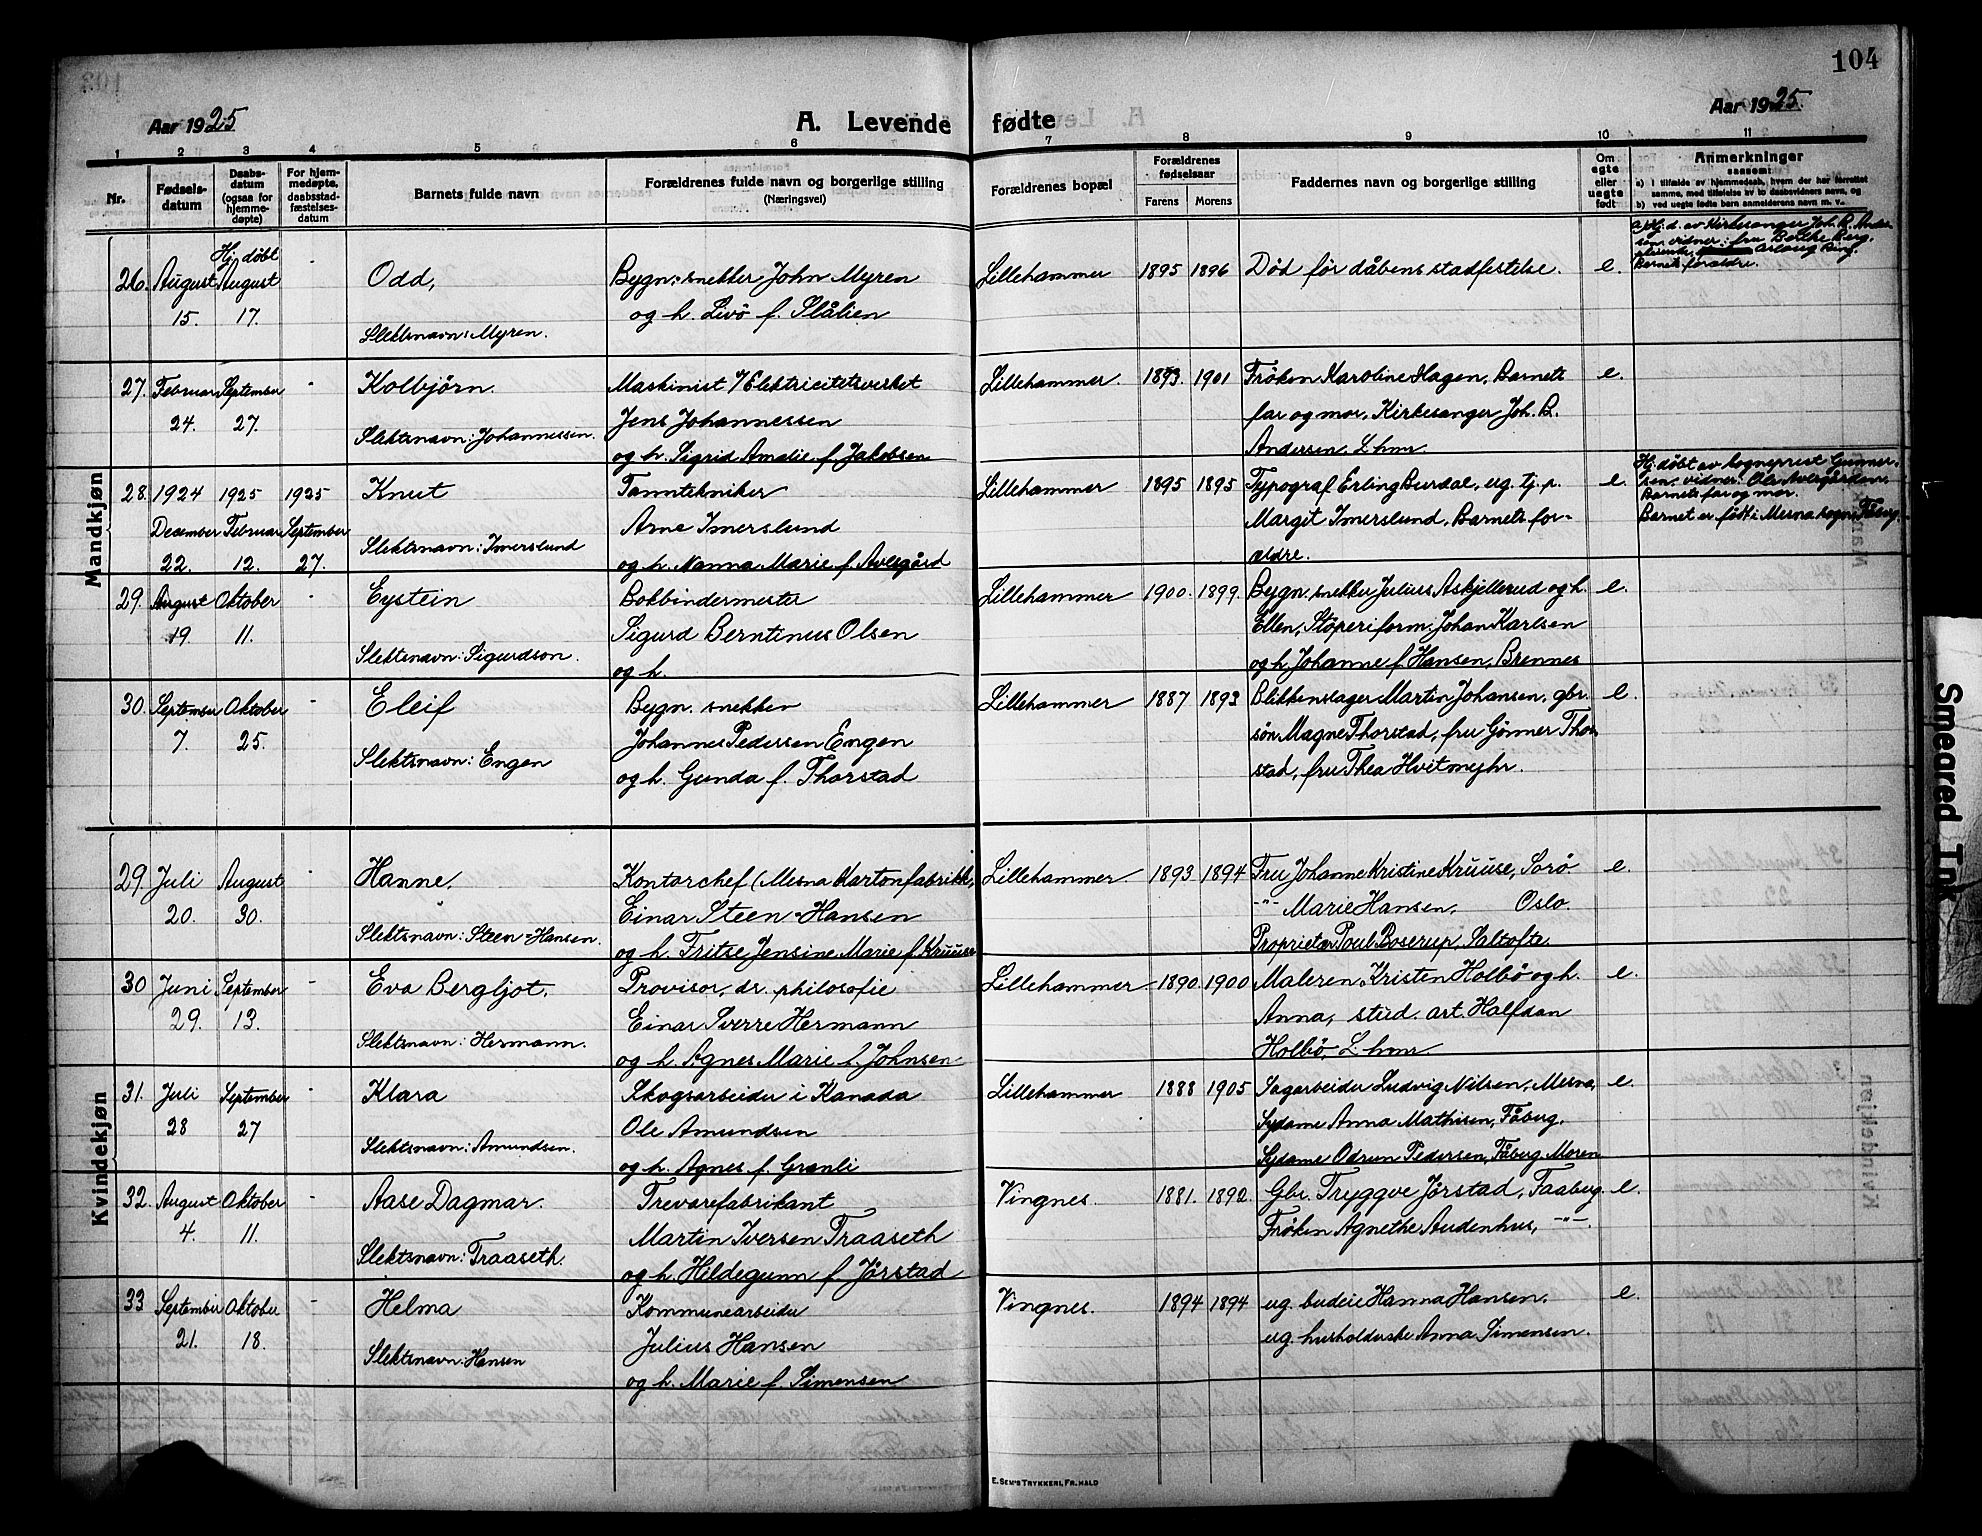 104
Aar 1925
A. Levende fødte
Aar 1925.
1 2 3 4 5 6 7 8 9 10 11
Nr.
Fødsels-
datum
Daabs-
datum
(ogsaa for
hjemme-
døpte)
For hjem-
medøpte,
daabsstad-
fæstelses-
datum
Barnets fulde navn
Forældrenes fulde navn og borgerlige stilling
(Næringsvei)
Forældrenes bopæl
Forældrenes
fødselsaar
Farens Morens
Faddernes navn og borgerlige stilling
Om
egte
eller
uegte
født
Anmerkninger
saasom:
a) i tilfælde av hjemmedaab, hvem der har forrettet
samme, med tilføielse av to daabsvidners navn, og
b) ved uegte fødte barn anmelderens navn m. v.
Mandkjøn
26. August 15. Hj. døbt August 17. -
Odd,
Slektsnavn: Myren.
Bygn. snekker John Myren
og h. Livö f. Slålien
Lillehammer 1895 1896
Död før dåbens stadfestelse. e.
a) Hj. d. av Kirkesanger Joh. B. Ander
sen, vidner: fru Berthe Berg,
Aslaug Ring.
Barnets forældre.
27. Februar 24. September 27. -
Kolbjörn.
Slektsnavn: Johannessen.
Maskinist v/Elektricitetsverket
Jens Johannessen
og h. Sigrid Amalie f. Jakobsen
Lillehammer. 1893. 1901
Fröken Karoline Hagen, Barnets
far og mor, Kirkesanger Joh. B.
Andersen, L.hmr.
e.
28. 1924 December 22. 1925 Februar 12. 1925 September 27.
Knut
Slektsnavn: Imerslund
Tanntekniker
Arne Imerslund
og h. Nanna Marie f. Avlsgård
Lillehammer 1895 1895
Typograf Erling Burdal, ug. tj. p.
Margit Imerslund, Barnets for-
ældre.
e.
Hj. døbt av sogneprest Gunner-
sen, vidner: Ole Avlsgården,
Barnets far og mor.
Barnet er født i Mesna sogn, Fåberg.
29. August 19 Oktober 11. -
Eystein
Slektsnavn: Sigurdson.
Bokbindermester
Sigurd Berntinus Olsen
og h.
Lillehammer 1900. 1899.
Bygn. snekker Julius Askjellerud og h.
Ellen, Stöperiform. Johan Karlsen
og h. Johanne f. Hansen, Brennes
e.
30. September 7. Oktober 25. -
Eleif
Slektsnavn: Engen
Bygn. snekker
Johannes Pedersen Engen
og h. Gunda f. Thorstad
Lillehammer 1887 1893
Blikkenslager Martin Johansen, gbr.
sön Magne Thorstad, fru Gönner Thor
stad, fru Thea Hvitmyhr.
e.
Kvindekjøn
29. Juli 20. August 30. -
Hanne.
Slektsnavn: Steen-Hansen.
Kontorchef (Mesna Kartonfabrikk,
Einar Steen-Hansen
og h. Fritse Jensine Marie f. Kruuse
Lillehammer. 1893 1894
Fru Johanne Kristine Kruuse, Sorö.
-"- Marie Hansen, Oslo.
Proprietær Poul Boserup, Saltofte.
e.
30 Juni 29. September 13. -
Eva Bergljot.
Slektsnavn: Hermann.
Provisor, dr. philosofie
Einar Sverre Hermann
og h. Agnes Marie f. Johnsen
Lillehammer 1890. 1900
Maleren Kristen Holbö og h.
Anna, stud. art. Halfdan
Holbö, L.hmr.
e.
31. Juli 28 September 27 -
Klara
Slektsnavn: Amundsen.
Skogsarbeider i Kanada
Ole Amundsen
og h. Agnes f. Granli
Lillehammer 1888 1905
Sagarbeider Ludvig Nilsen, Mesna,
Sydame Anna Mathisen, Fåberg.
Sydame Odrun Pedersen, Fåberg. Moren
e.
32. August 4. Oktober 11. -
Aase Dagmar.
Slektsnavn: Traaseth.
Trevarefabrikant
Martin Iversen Traaseth
og h. Hildegunn f. Jörstad
Vingnes. 1881. 1892.
Gbr. Tryggve Jörstad, Faaberg.
Fröken Agnethe Audenhus, -"-
e.
33 September 21. Oktober 18. -
Helma
Slektsnavn: Hansen
Kommunearbeider
Julius Hansen
og h. Marie f. Simensen
Vingnes. 1894 1894
ug. budeie Hanna Hansen.
ug. husholderske Anna Simensen.
e.
E. SEM'S TRYKKERI, FR.HALD
Smeared Ink